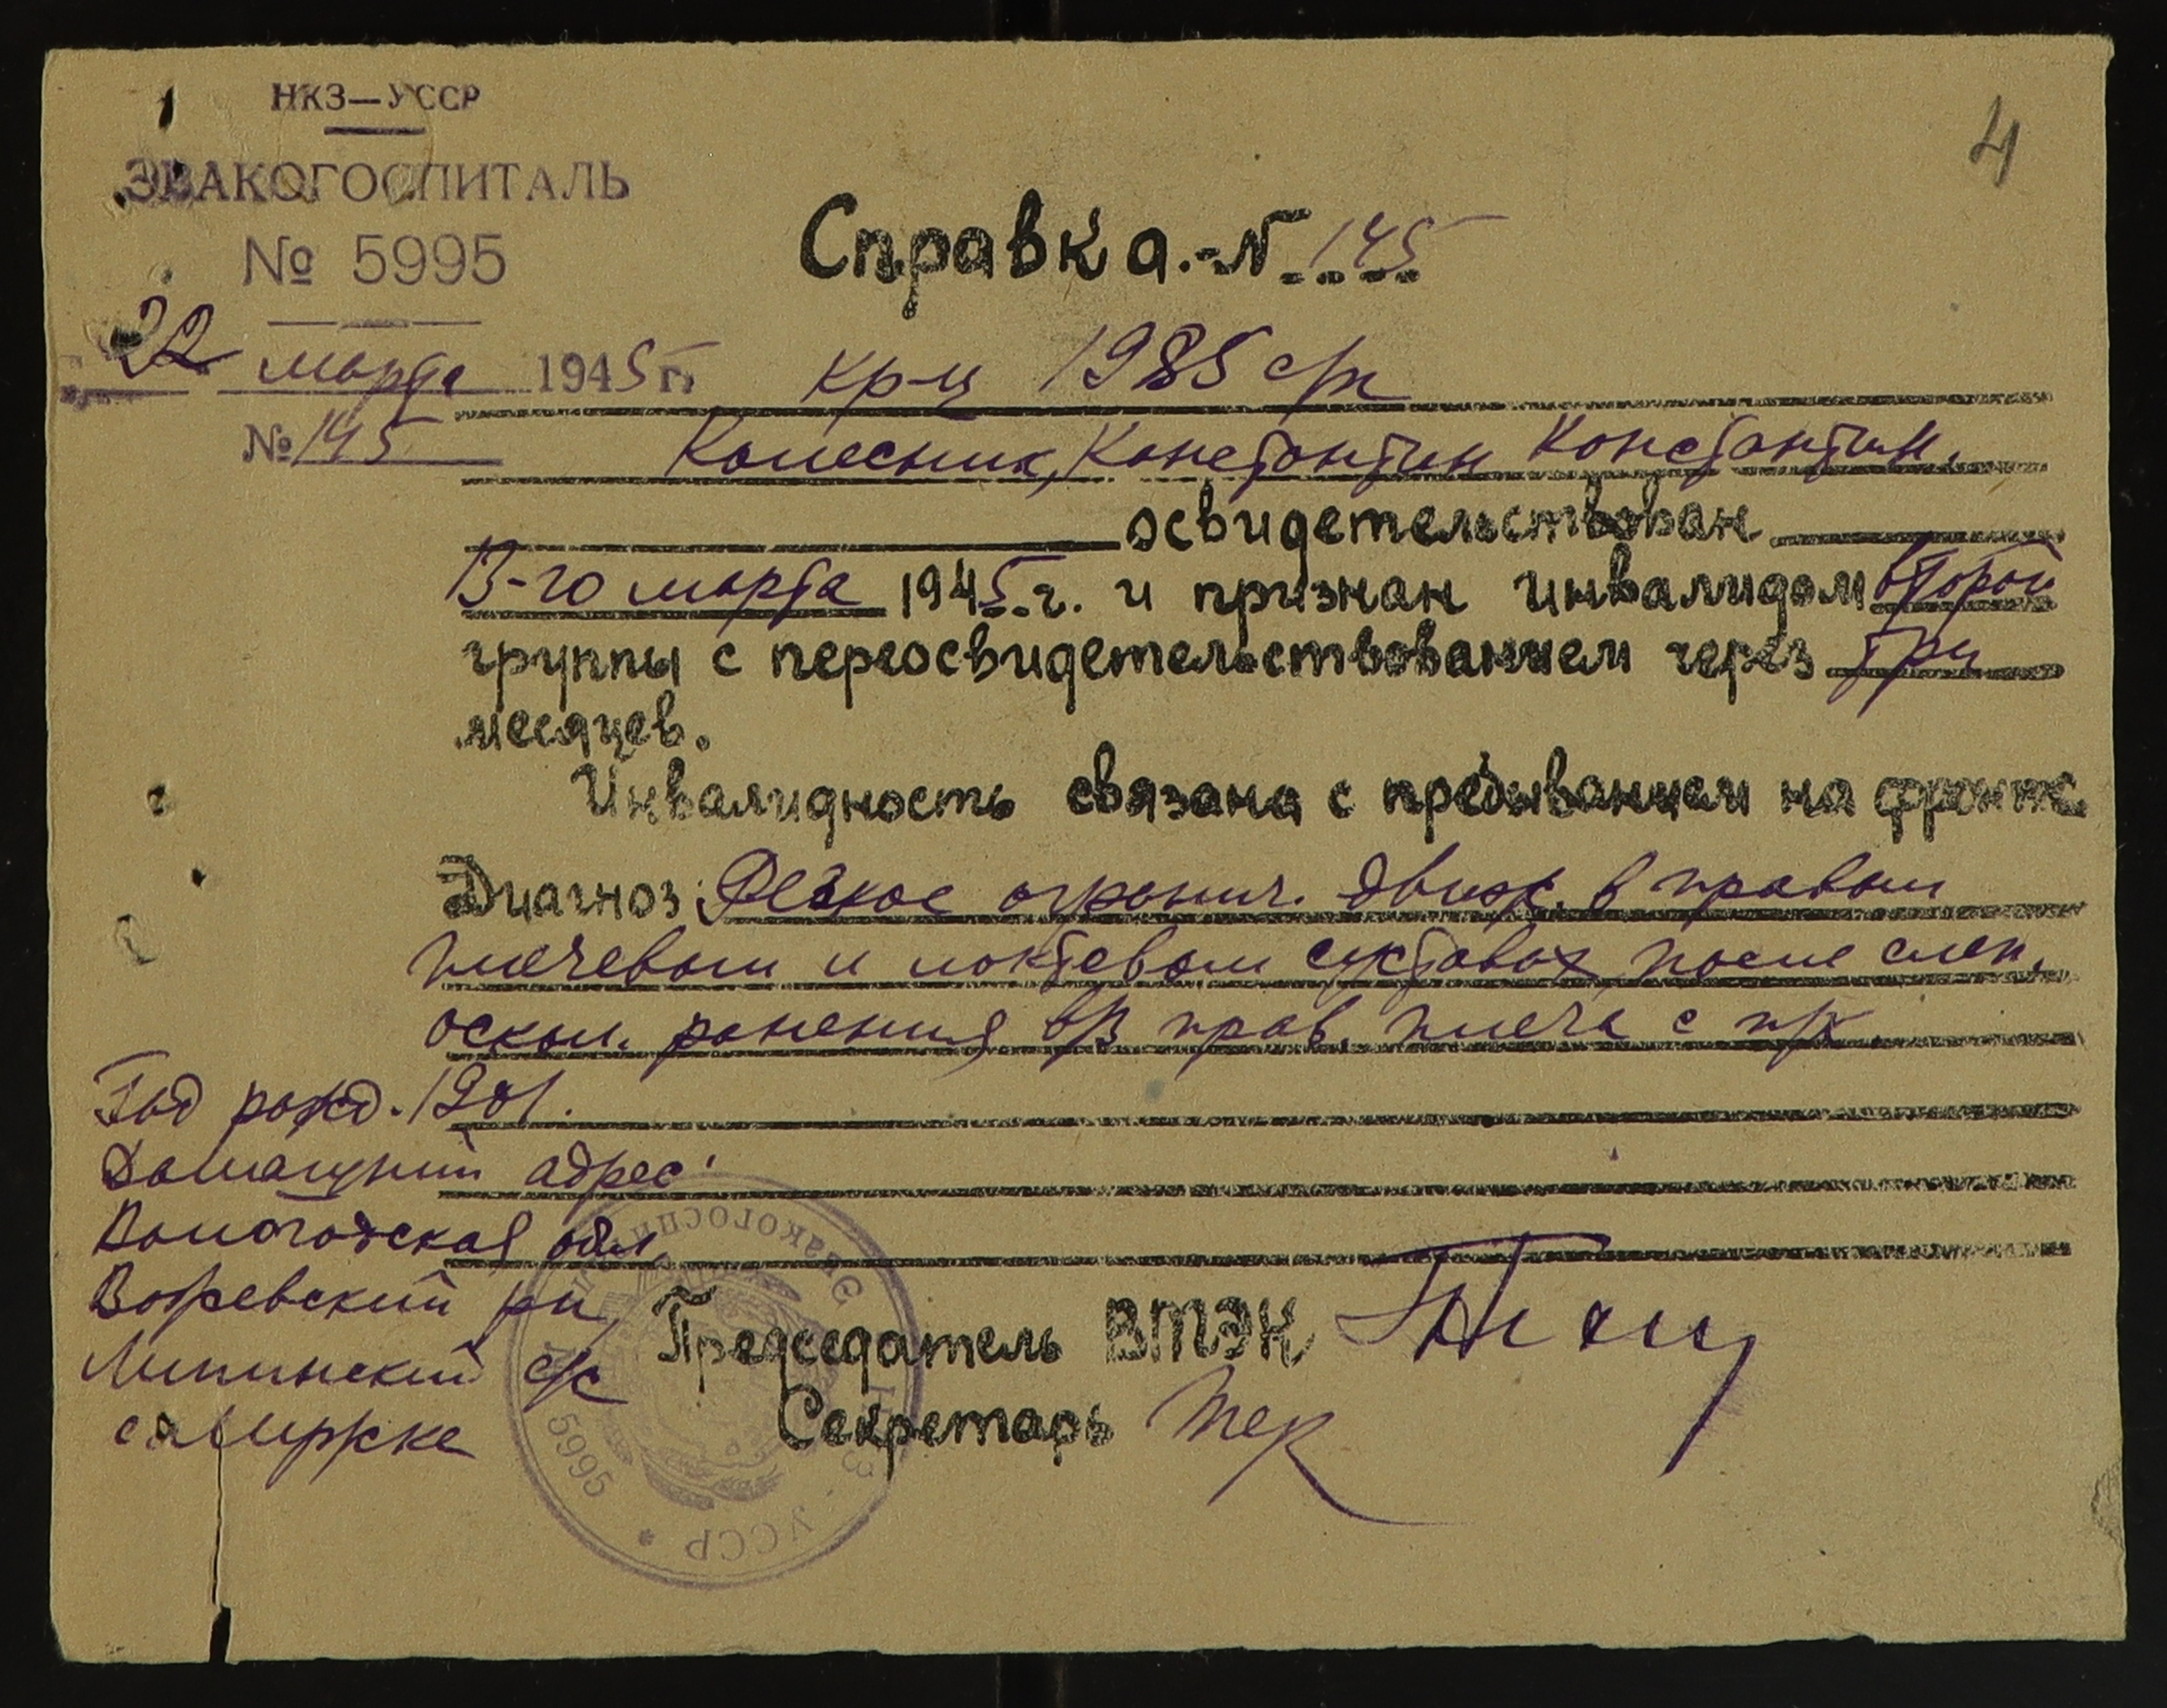 НКЗ—УССР
ЭВАКОГОСПИТАЛЬ
№ 5995
22 марта 1945 г.
№ 145
4
Справка.-N 145
кр-ц 1985 с/п
Колесник, Константин Константин.
освидетельствован
13-го марта 1945 г. и признан инвалидом второй
группы с переосвидетельствованием через три
месяцев.
Инвалидность связана с пребыванием на фронте
Диагноз: Резкое огранич. движ. в правом
плечевом и локтевом суставах после слеп.
оскол. ранения в/з прав. плеча с
Год рожд. 1901.
Домашний адрес:
Вологодская обл.
р-н
Липинский с/с
Председатель ВТЭК
Секретарь
Эвакогоспиталь 5995 НКЗ - УССР *